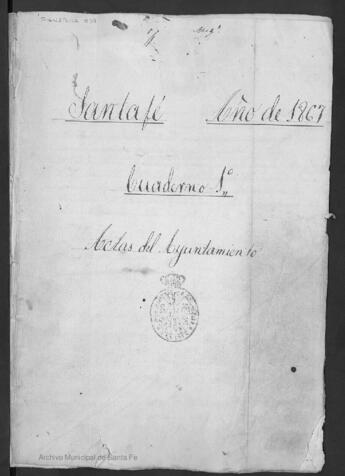 Santafé Año de 1867
Cuaderno 1.º
Actas del Ayuntamiento
Archivo Municipal de Santa Fe